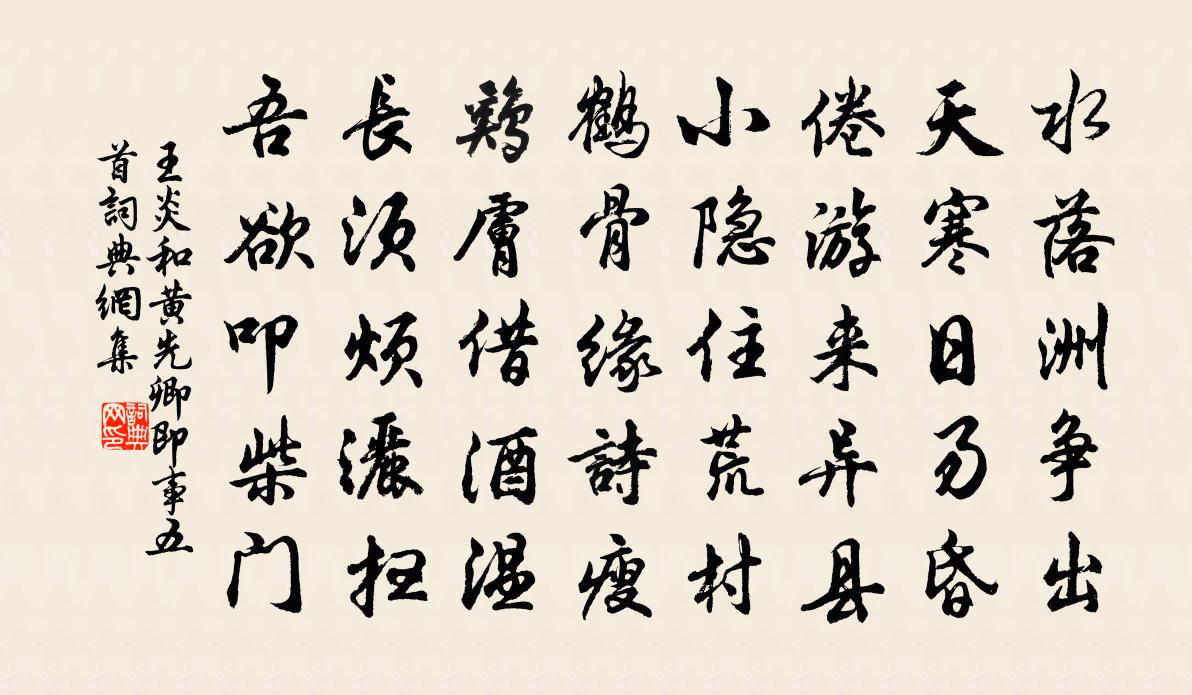 水落洲争出
天寒日易昏
倦游来异县
小隐住荒村
鹤骨缘詩瘦
鷄膚借酒温
長须烦灑扫
吾欲叩柴门
王炎和黄先卿即事五
首詞典網集
詞典网印